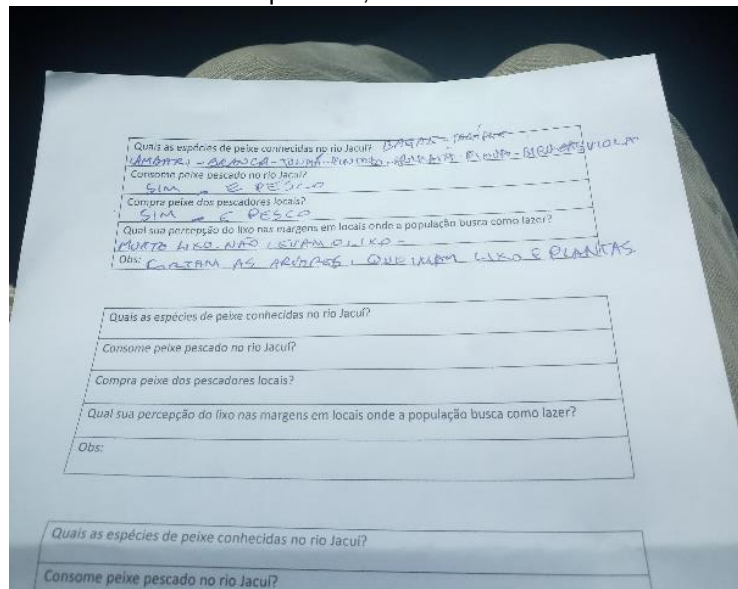 Quais as espécies de peixe conhecidas no rio Jacuí? BAGRE -
LAMBARI - BRANCA - - PINTADO - - VIOLA
Consome peixe pescado no rio Jacuí?
SIM - E PESCO
Compra peixe dos pescadores locais?
SIM - E PESCO
Qual sua percepção do lixo nas margens em locais onde a população busca como lazer?
MUITO LIXO. NÃO LEVAM O LIXO -
Obs: CORTAM AS ARVORES, QUEIMAM LIXO E PLANTAS
Quais as espécies de peixe conhecidas no rio Jacuí?
Consome peixe pescado no rio Jacuí?
Compra peixe dos pescadores locais?
Qual sua percepção do lixo nas margens em locais onde a população busca como lazer?
Obs:
Quais as espécies de peixe conhecidas no rio Jacuí?
Consome peixe pescado no rio Jacuí?